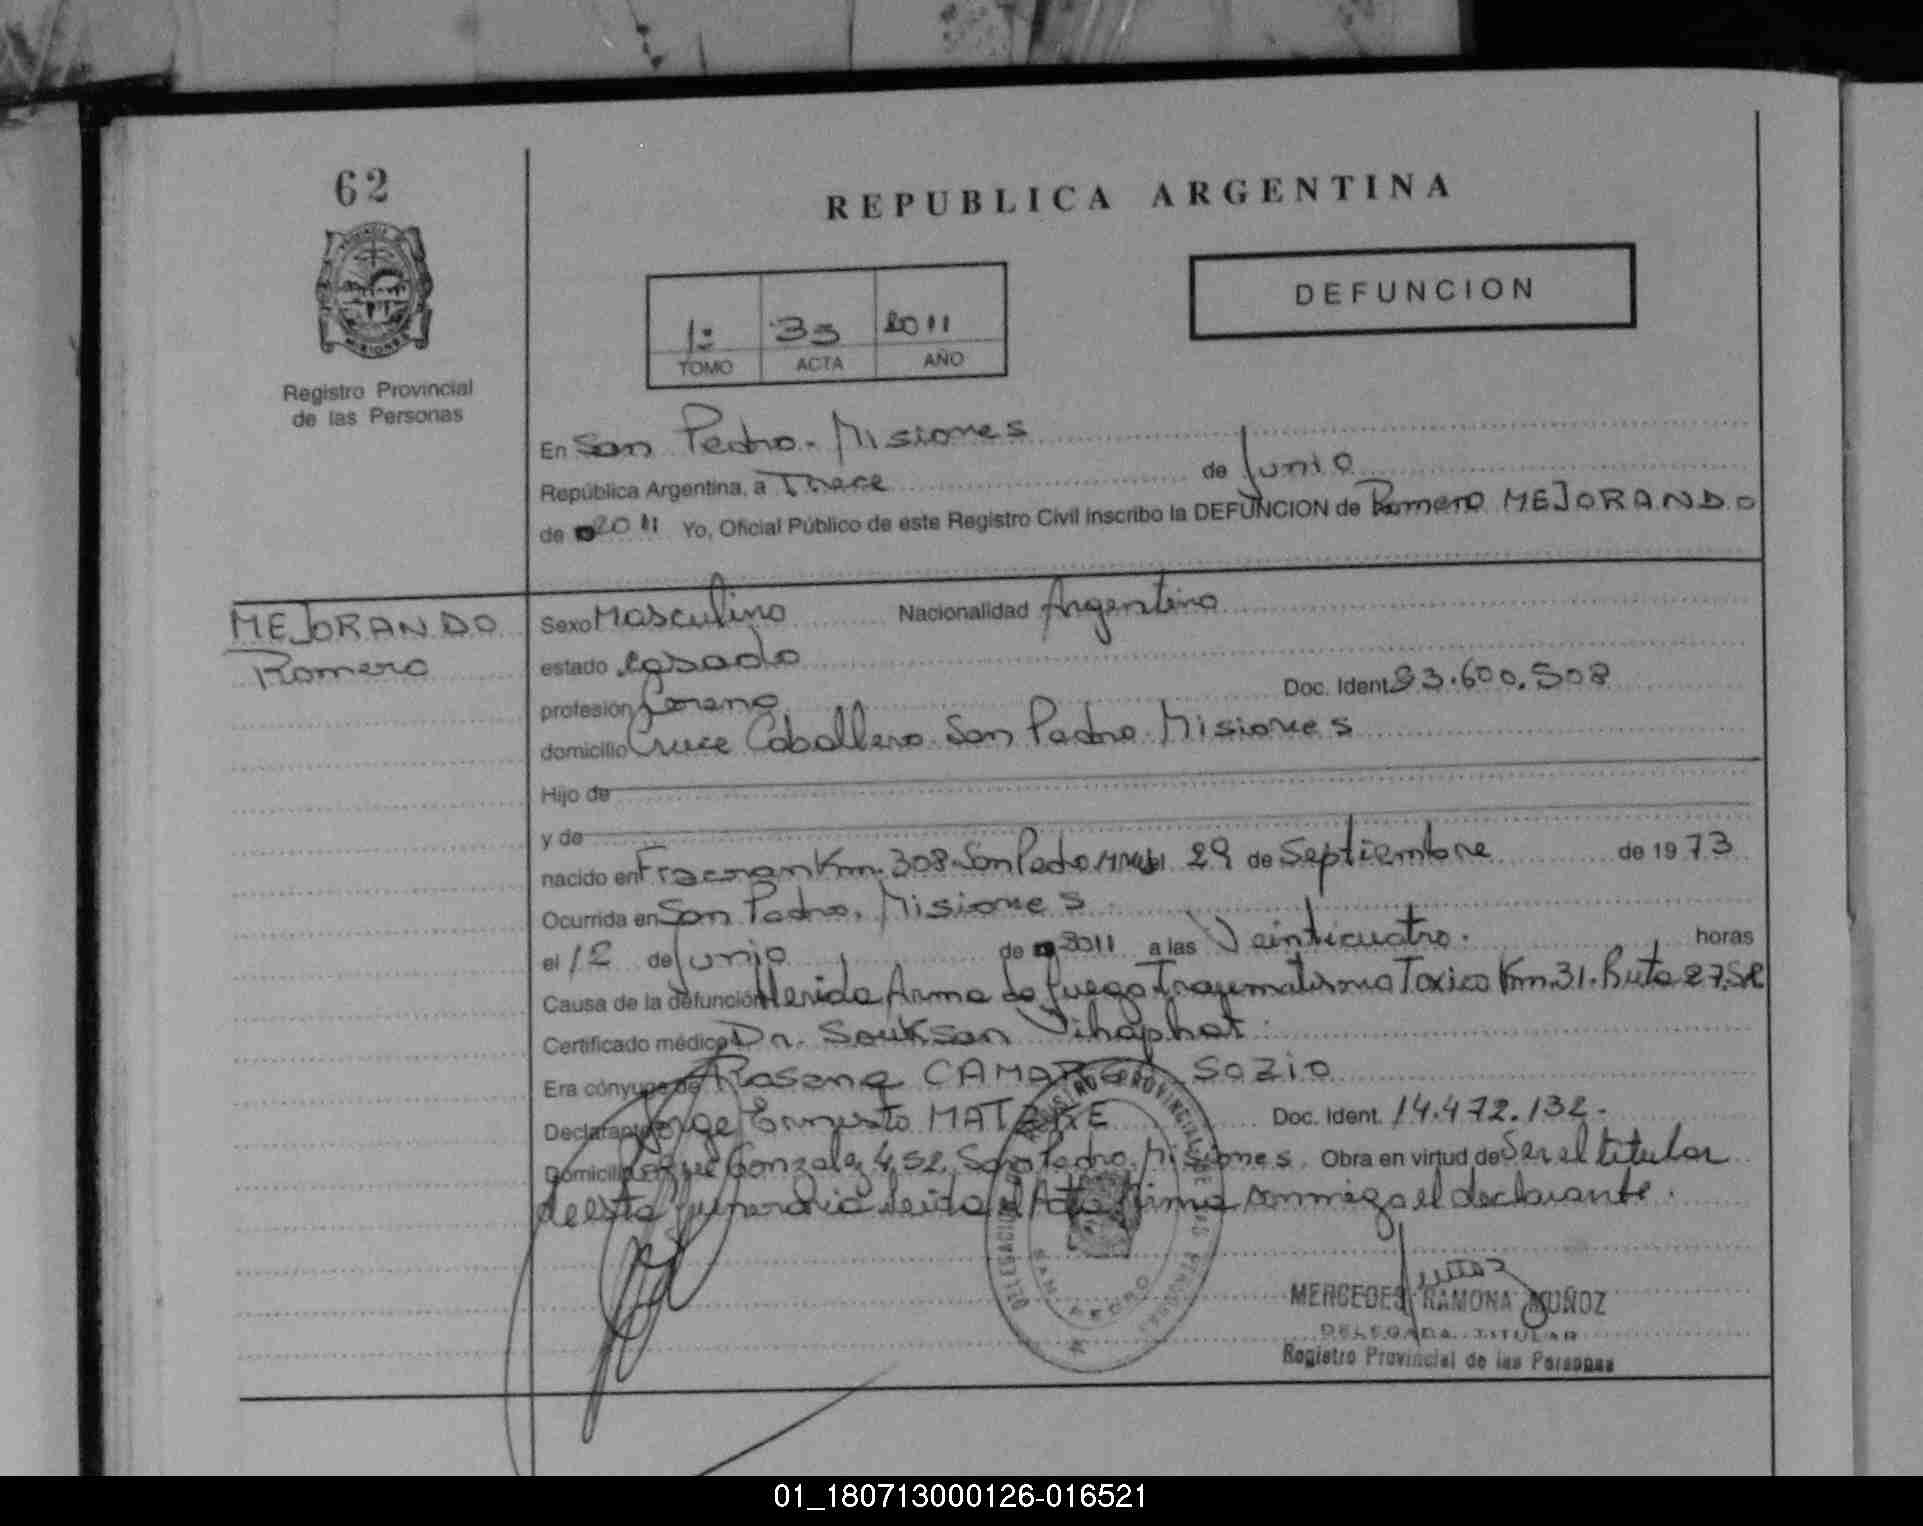 62
REPUBLICA ARGENTINA
DEFUNCION
1: 33 2011
TOMO ACTA AÑO
Registro Provincial
de las Personas
En San Pedro - Misiones
República Argentina, a Trece de Junio
de 2011 Yo, Oficial Público de este Registro Civil inscribo la DEFUNCION de Romero MEJORANDO
MEJORANDO
Romero
Sexo Masculino Nacionalidad Argentino
estado casado
profesión Doc. Ident. 93.600.508
domicilio Cruce Caballero San Pedro Misiones
Hijo de
y de
nacido en Fracran Km. 308 San Pedro el 29 de Septiembre de 1973
Ocurrida en San Pedro, Misiones
el 12 de Junio de 2011 a las Veinticuatro. horas
Causa de la defunción Herida Arma de fuego Traumatismo Toxico Km.31. Ruta 27.
Certificado médico Dr. Souksan Vihaphat
Era cónyuge de Rosana CAMARGO SOZIO
Declarante Jorge Ernesto Doc. Ident. 14.472.132-
Domicilio Gonzalez 452 San Pedro. Misiones. Obra en virtud de Ser el titular
de esta funeraria leida el Acta firma conmigo el declarante.
REGISTRO PROVINCIAL DE LAS PERSONAS
SAN PEDRO
MERCEDES RAMONA MUÑOZ
DELEGADA TITULAR
Registro Provincial de las Personas
01_180713000126-016521